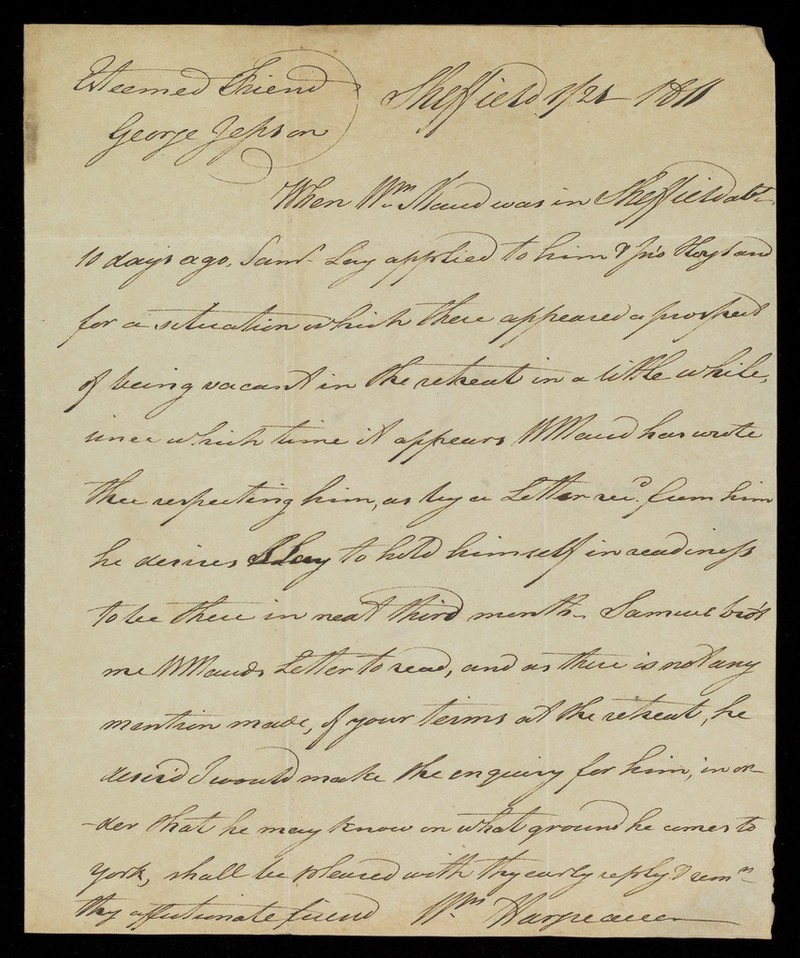 Esteemed Friend Sheffield 1/21 1811
George Jepson
When Wm. Maud was in Sheffield abt.
10 days ago, Saml. Lay applied to him & Jno Hoyland
for a situation which there appeared a prospect
of being vacant in the retreat in a little while,
since which time it appears WMaud has wrote
thee respecting him, as by a Letter recd. from him
he desires SLay to hold himself in readiness
to be there in next third month. Samuel bro't
me WMauds Letter to read, and as there is not any
mention made, of your terms at the retreat, he
desir'd I would make the enquiry for him, in or-
-der that he may know on what ground he comes to
York, shall be pleased with thy early reply & remn.
thy affectionate friend Wm.